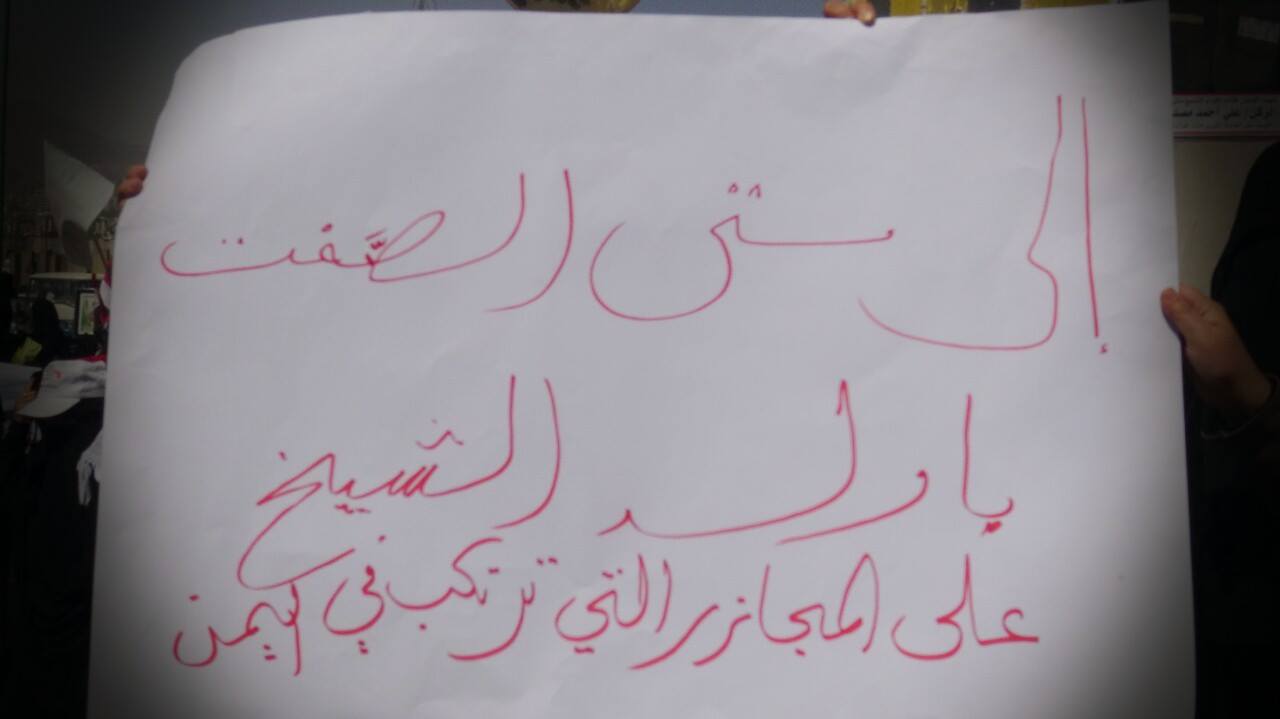 إلى متى الصَّمت
يا ولد الشيخ
على المجازر التي ترتكب في اليمن
علي أحمد